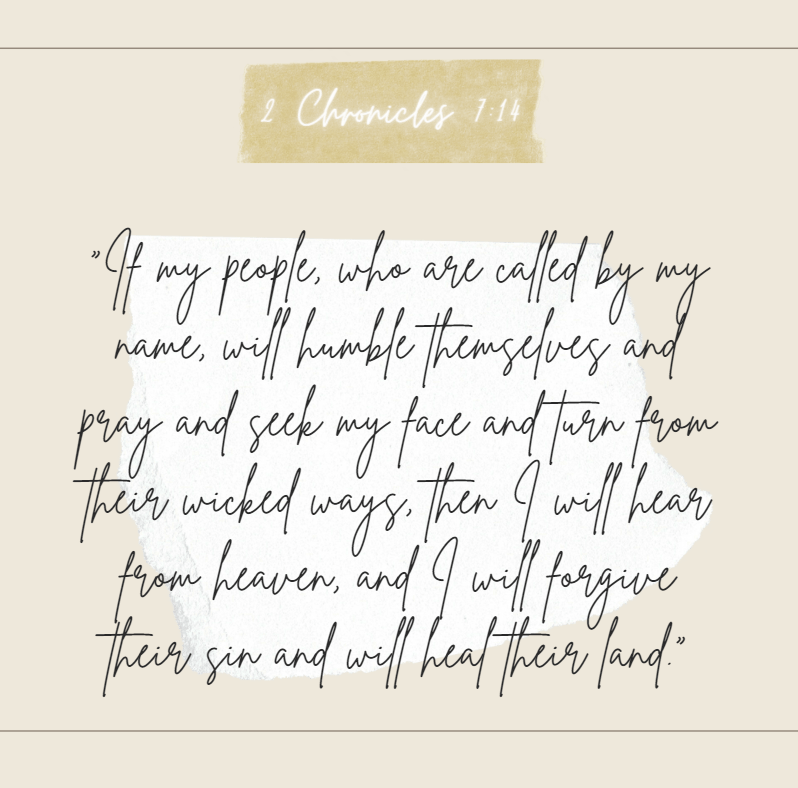 2 Chronicles 7:14
"If my people, who are called by my
name, will humble themselves and
pray and seek my face and turn from
their wicked ways, then I will hear
from heaven, and I will forgive
their sin and will heal their land."